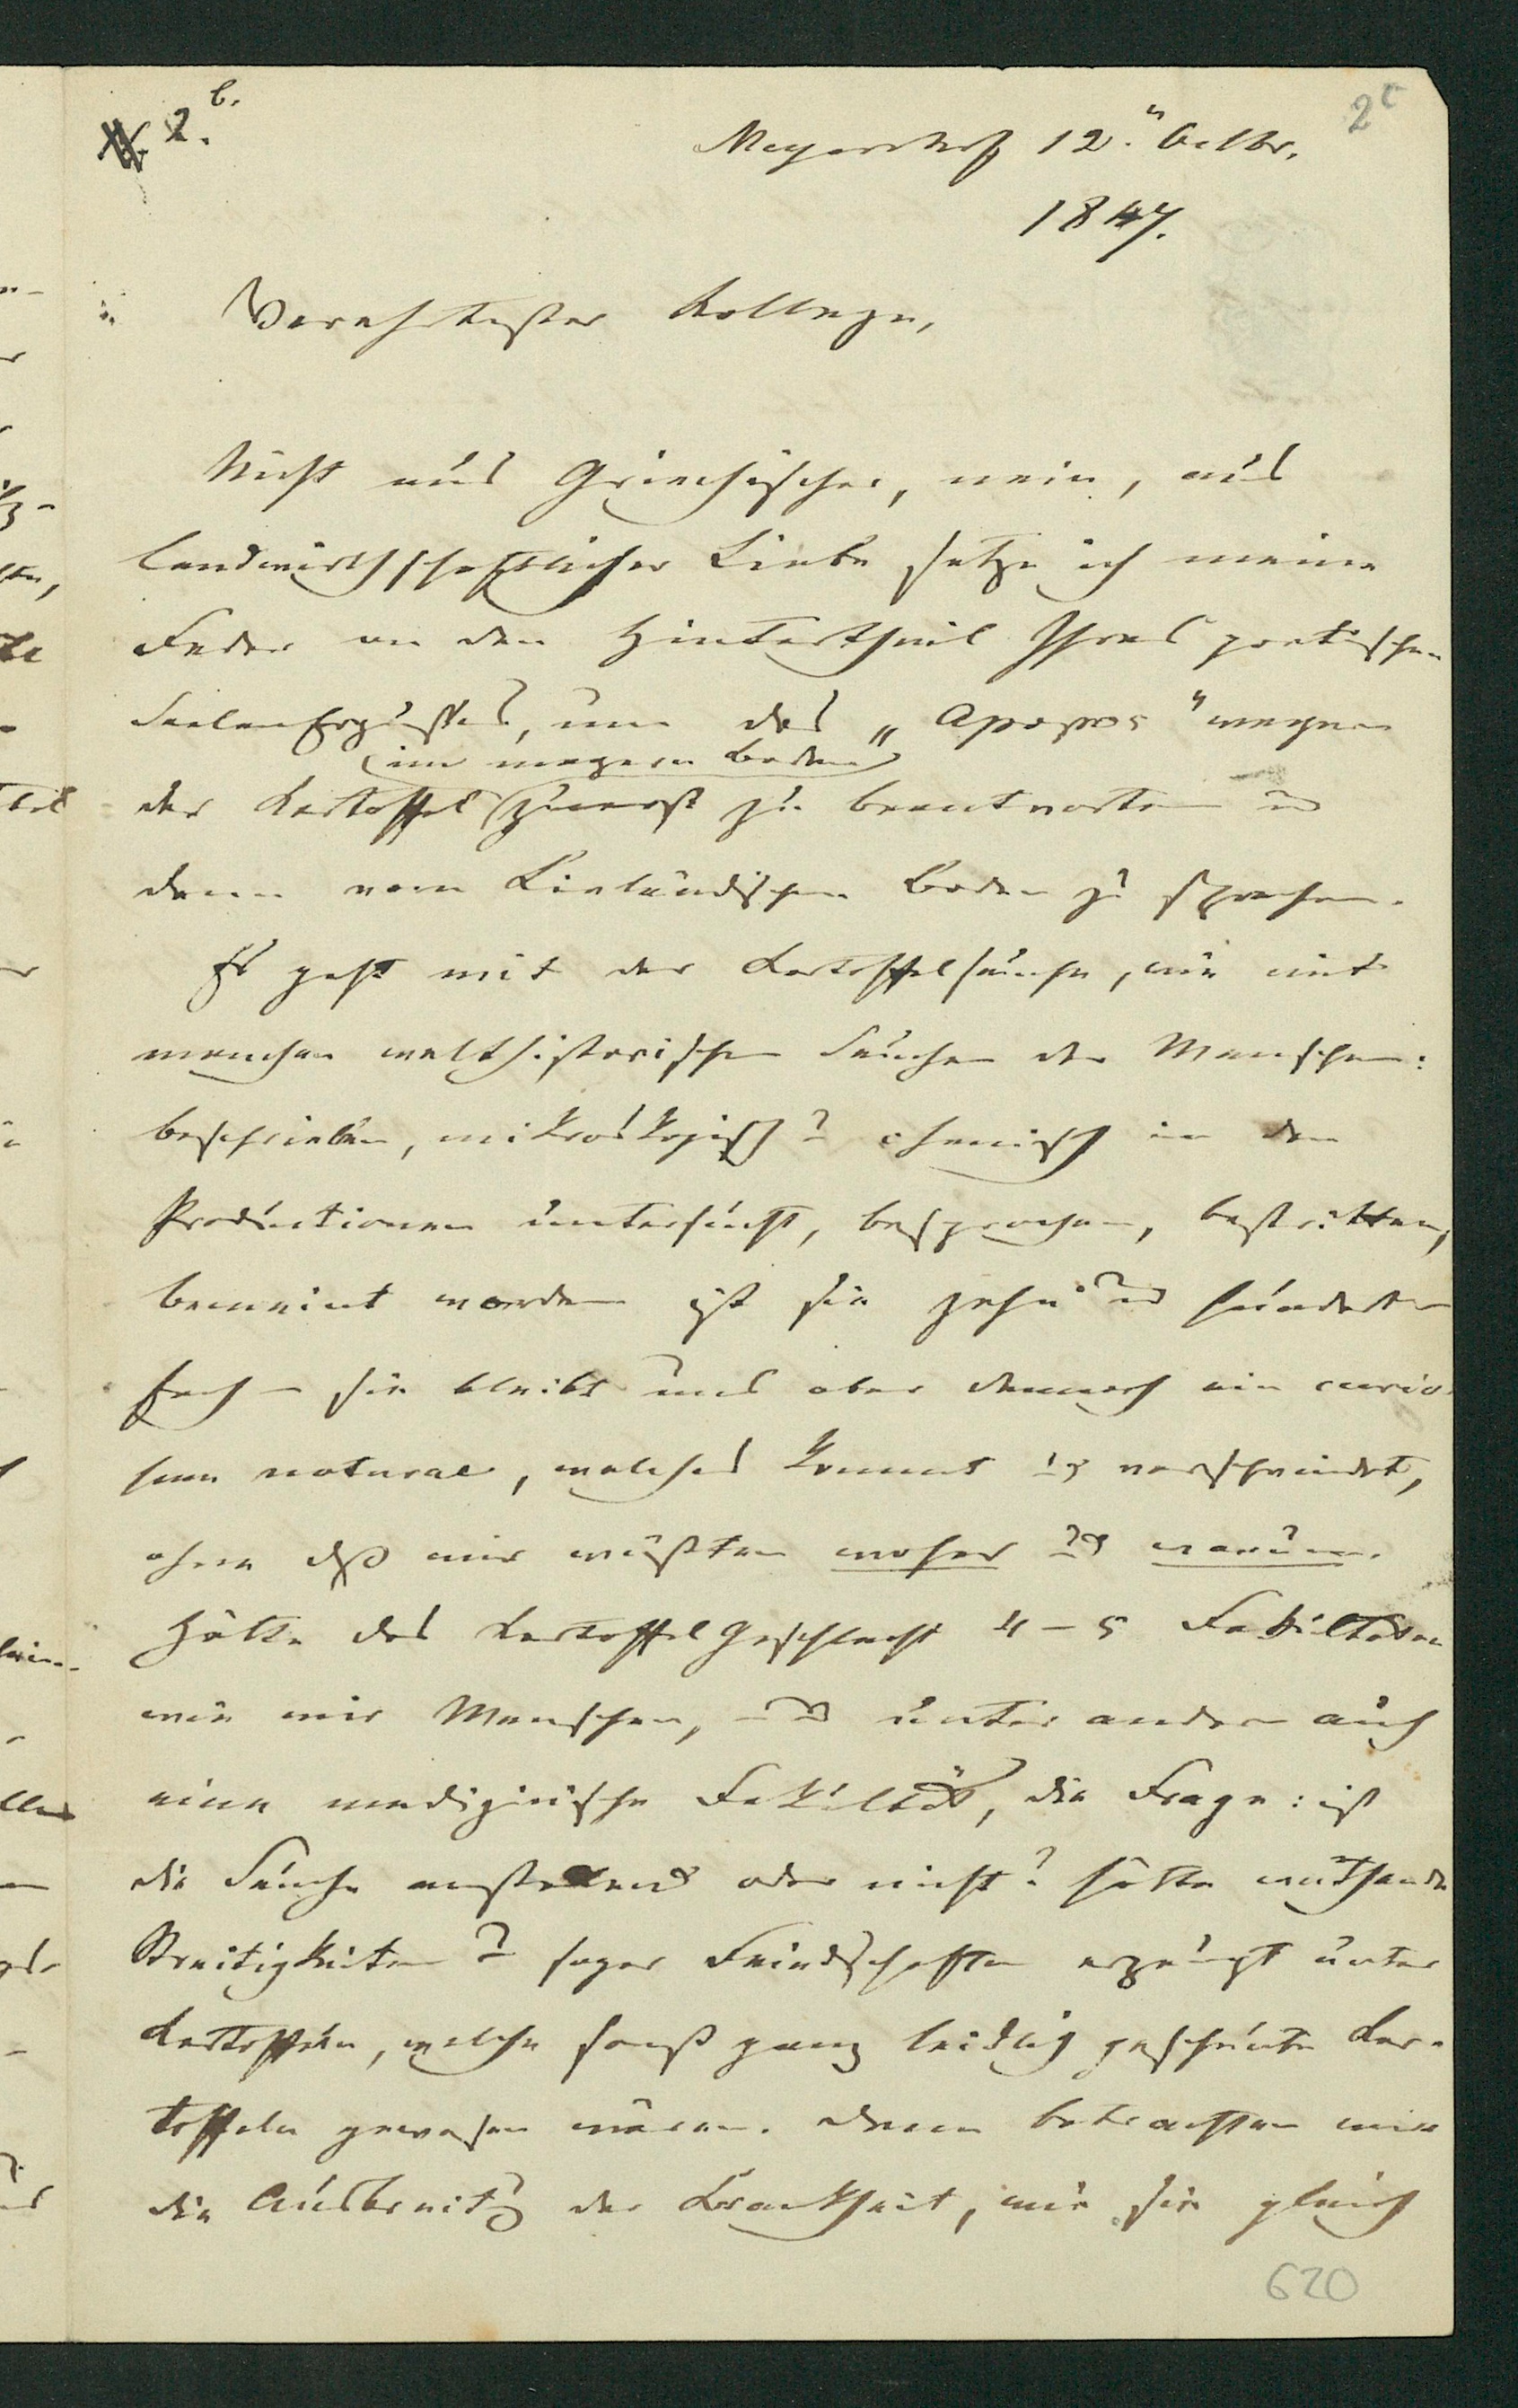 2.b.
2c
Meyershof 12.n Octbr.
1847.
Verehrtester Kollege,
Nicht aus Griechischer, nein, aus
landwirthschaftlicher Liebe setze ich meine
Feder an den Hintertheil Ihres poetischen
Seelen Ergusses, um das „Apropos" wegen
(im magern Boden)
der Kartoffel zuerst zu beantworten und
dann vom Livländischen Boden zu sprechen.
Es geht mit der Kartoffelseuche, wie mit
manchen welthistorischen Seuchen der Menschen:
beschrieben, mikroskopisch u chemisch in den
Productionen untersucht, besprochen, bestritten,
beweint worden ist sie zehn- und hundert-
fach – sie bleibt uns aber dennoch ein curio-
sum naturae, welches kommt und verschwindet,
ohne daß wir wüßten woher und warum.
Hätte das Kartoffelgeschlecht 4–5 Fakultäten
wie wir Menschen, und unter andern auch
eine medizinische Fakultät, die Frage: ist
die Seuche ansteckend oder nicht? hätte wüthende
Streitigkeiten u sogar Feindschaften erzeugt unter
Kartoffeln, welche sonst ganz leidlich gescheute Kar-
toffeln gewesen wären. Denn betrachten wir
die Ausbreitg der Krankheit, wie sie gleich
620